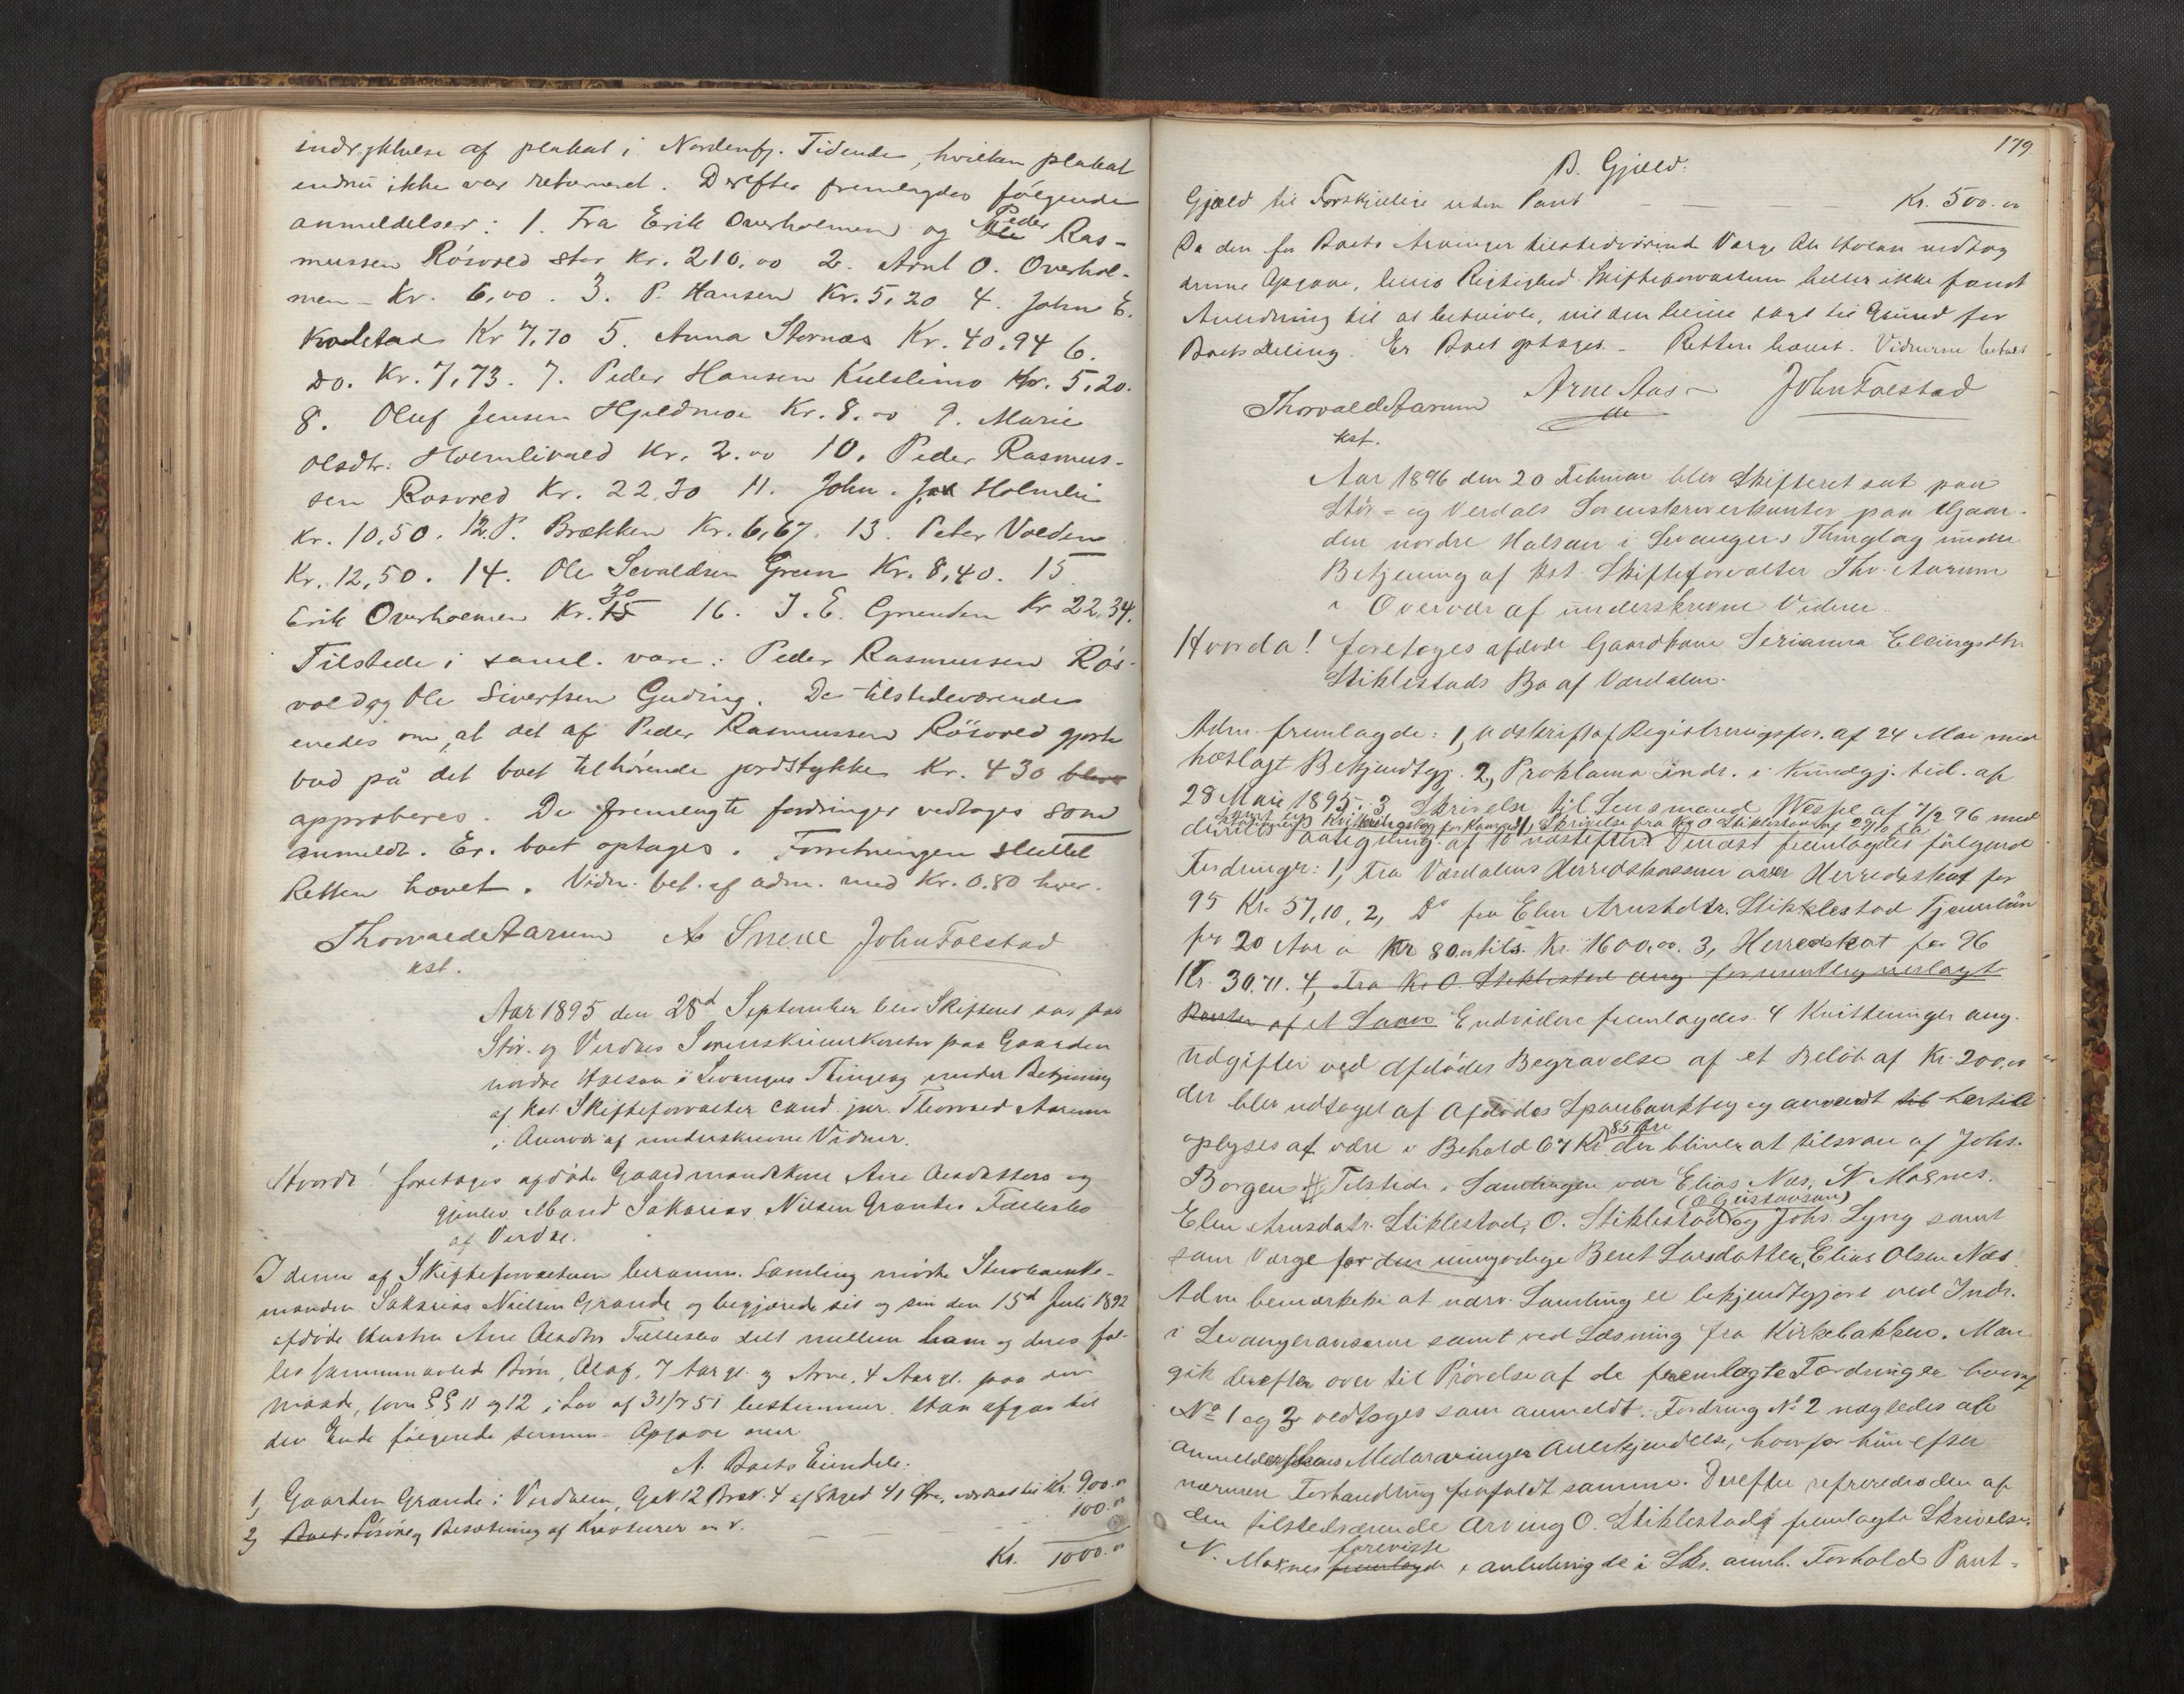 indrykkelse af plakat i Nordenfj. Tidende, hvilken plakat
endnu ikke var returneret. Derefter fremlagdes følgende
anmeldelser: 1. Fra Erik Overholmen og Peder Ras-
mussen Rösvold stor Kr. 210.00 2. Arnt O. Overhol-
men - Kr. 6,00. 3. P. Hansen Kr. 5,20 4. John E.
Kr 7,70 5. Anna Stornæs Kr. 40,94 6.
Do. Kr. 7,73. 7. Peder Hansen Kulslimo Kr. 5,20.
8. Oluf Jensen Hjeldmoe Kr. 8.00 9. Marie
Olsdtr. Kr. 2.00 10. Peder Rasmus-
sen Rosvold Kr. 22,30 11. John Holmli
Kr. 10,50. 12. P. Brækken Kr. 6,67. 13. Peter Volden
Kr. 12,50. 14. Ole Sevaldsen Green Kr. 8,40. 15
Erik Overholmen Kr. 15 30 16. J. E. Grunden Kr 22,34.
Tilstede i saml. vare: Peder Rasmussen Rös-
vold og Ole Sivertsen Guding. De tilstedeværende
enedes om, at det af Peder Rasmussen Rösvold gjorte
bud på det boet tilhörende jordstykke Kr. 430
approberes. De fremlagte fordringer vedtoges som
anmeldt. Er. boet optages. Forretningen sluttet
Retten hævet. Vidn. bet. af adm. med Kr. 0.80 hver.
Thorvald Aarum John Folstad
kst.
Aar 1895 den 28d September blev Skifteret sat paa
Stör- og Verdals Sorenskriverkontor paa Gaarden
nordre Halsan i Levangers Thinglag under Betjening
af Kst. Skifteforvalter cand. jur. Thorvald Aarum
i Overvær af underskrevne Vidner.
Hvorda! foretoges afdöde Gaardmandskone Ane Olsdatters og
gjenlev. Mand Sakarias Nilsen Grandes Fællesbo
af Verdal.
I denne af Skifteforvalteren beramm. Samling mödte
manden Sakarias Nielsen Grande og begjærede sit og sin den 15d Juli 1892
afdöde Hustru Ane Olsdtrs Fællesbo delt mellem ham og deres fæl-
les sammenavlede Börn, Olaf, 7 Aar gl. og Arne, 4 Aar gl. paa den
maade, som §§ 11 og 12 i Lov af 31/7 51 bestemmer. Han afgav til
den Ende fölgende summ. Opgave over
A. Boets Eiendele:
1, Gaarden Grande i Verdalen, G.N. 12 Brs.N. 4 af Skyld 41 Öre, værdsat til Kr. 900.00
2, Boets Lösöre og Besætning af Kreaturer m. v. 100.00
Kr. 1000.00
179
B. Gjæld:
Gjæld til Forskjellige uden Pant Kr. 500.00
Da den for Boets Arvinger tilstedeværende Værge Ole Holan vedtog
denne Opgave, hvis Rigtighed Skifteforvalteren heller ikke fandt
Anledning til at betvivle, vil den blive lagt til Grund for
Boets Deling. Er Boet optaget. - Retten hævet. Vidnerne betalt
Thorvald Aarum Arne Aas John Folstad
kst.
Aar 1896 den 20 Februar blev Skifteret sat paa
Stör- og Verdals Sorenskriverkontor paa Gaar-
den nordre Halsan i Levangers Thinglag under
Betjening af Kst. Skifteforvalter Thv. Aarum
i Overvær af underskrevne Vidner.
Hvorda! foretoges afdöde Gaardkone Serianna Ellingsdtr.
Stiklestads Bo af Værdalen.
Adm. fremlagde: 1, Udskrift af Registreringsfor. af 24 Mai med
hoslagt Bekjendtgj. 2, Proklama Indr. i Kundgj. tid. af
28 Mai 1895. 3 Skrivelse til Lensmand Wessel af 7/2 96 med
Skrivelse fra O Stiklestad af 29/10
paategning af 10 næstefter. Dernæst fremlagdes fölgende
Fordringer: 1, Fra Værdalens Herredskasserer over Herredsskat for
95 Kr. 57,10. 2, Do fra Elen Arnstdtr. Stiklestad Tjenerlön
for 20 Aar a Kr 80.00 tils. Kr. 1600,00. 3, Herredskat for 96
Kr. 30.71. 4, Fra K. O. Stiklestad ang.
Renter af et Laan Endvidere fremlagdes 4 Kvitteringer ang.
Udgifter ved Afdödes Begravelse af et Belöb af Kr. 200,00
der blev udtaget af Afdödes Sparbankbog og anvendt til hertil
oplyses at være i Behold 67 Kr. 85 Öre der bliver at tilsvare af Johs.
Borgen. Tilstede i Samlingen var Elias Næs, N. Maknes.
Elen Arnsdatr. Stiklestad, O. Stiklestad (O Gustavsen) og Johs. Lyng samt
som Værge for den umyndige Beret Larsdatter, Elias Olsen Næs.
Adm bemærkede at nærv. Samling er bekjendtgjort ved Indr.
i Levangeravisene samt ved Læsning fra Kirkebakken. Man
gik derefter over til Prövelse af de fremlagte Fordringer hvoraf
No 1 og 3 vedtoges som anmeldt. Fordring No 2 nægtedes af
anmelderskens Medarvinger Anerkjendelse, hvorfor hun efter
nærmere Forhandling frafaldt samme. Derefter refereredes den af
den tilstedeværende Arving O. Stiklestad fremlagte Skrivelse.
N. Maknes fremlagde foreviste i anledning de i Skr. anmh. Forhold Pant-